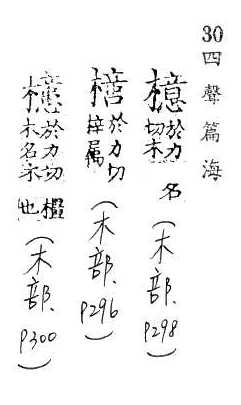 30四聲篇海
檍於力切木名(木部、p298)
於力切梓屬(木部、p296)
於力切木名也(木部、p300)